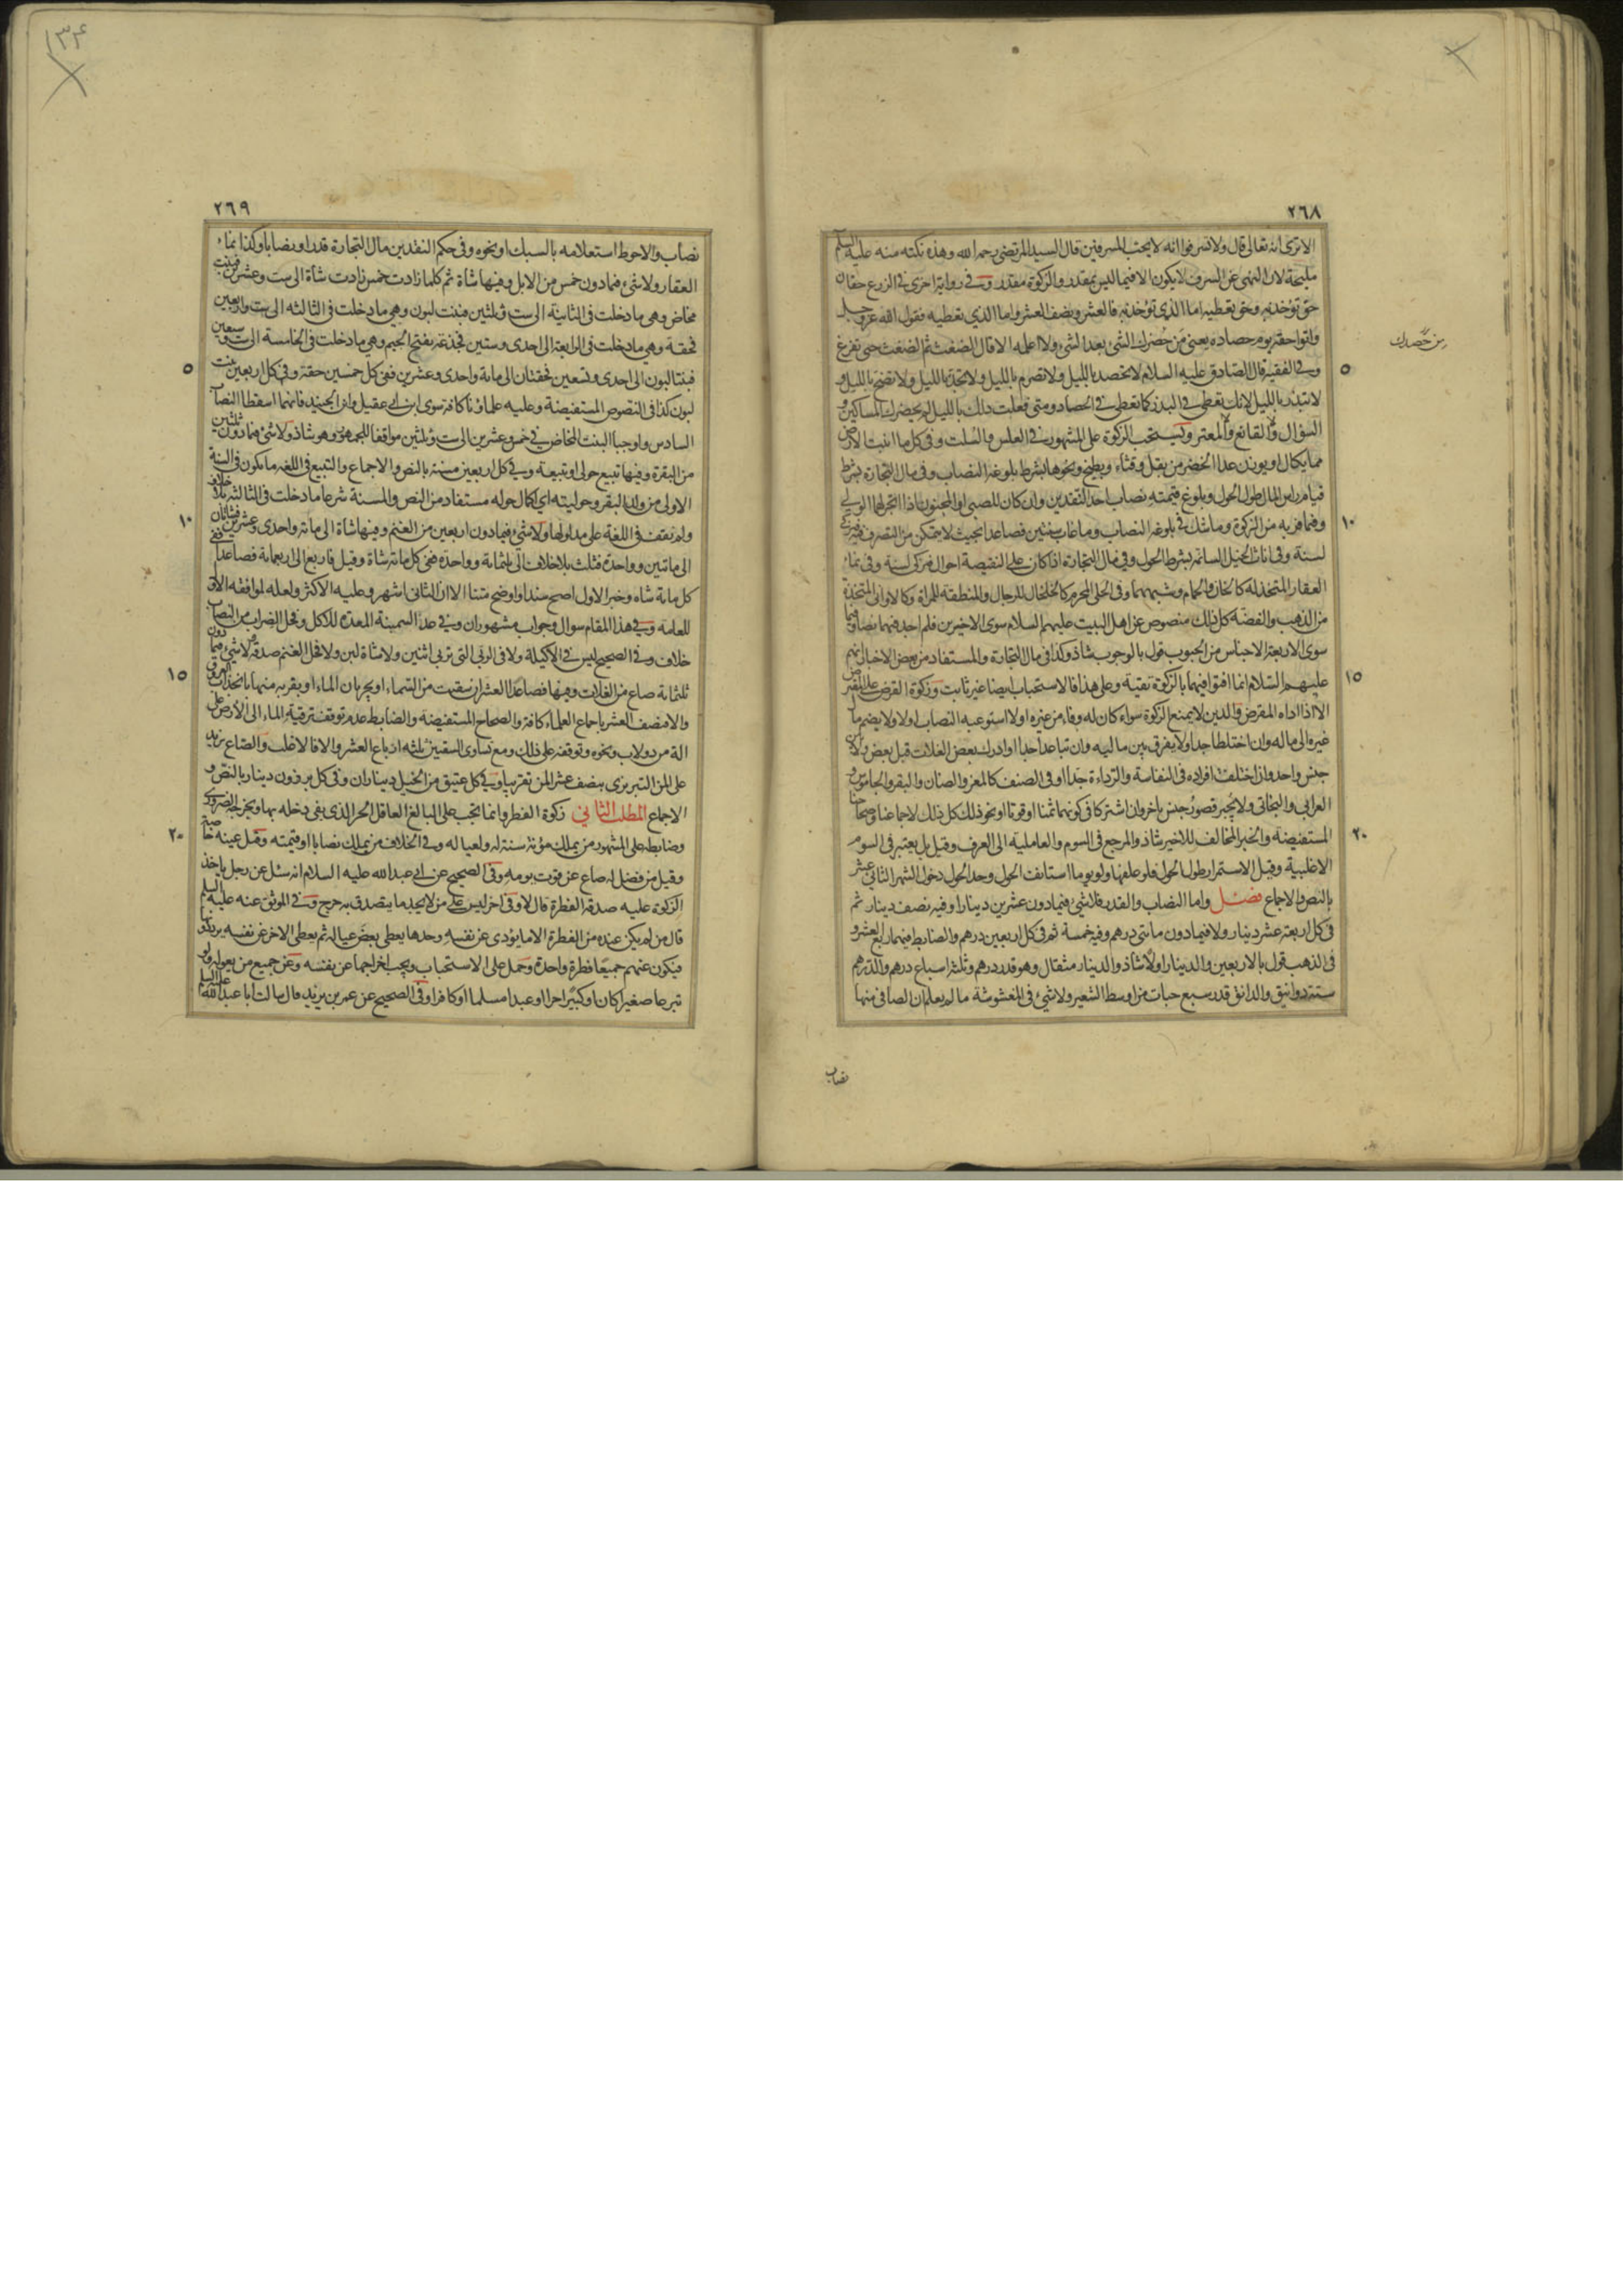 ٢٦٨
الا ترى انه تعالى قال ولا تسرفوا انه لا يحب المسرفين قال السيد المرتضى رحمه الله وهذه نكتة منه عليه السلم
مليحة لان النهى عن السرف لا يكون الا فيما ليس بمقدر والزكوة مقدر وفى رواية اخرى فى الزرع حقان
حق تؤخذ به وحق تعطيه اما الذى تؤخذ به فالعشر ونصف العشر واما الذي تعطيه فقول الله عز وجل
واتوا حقه يوم حصاده يعنى من حضرك الشى بعد الشئ ولا اعلمه الا قال الضغث ثم الضغث حتى تفرغ
من حصدك
٥
وفى الفقيه قال الصادق عليه السلام لا تحصد بالليل ولا تصرم بالليل ولا تجذ بالليل ولا تضح بالليل و
لا تبذر بالليل لانك تعطى فى البذر كما تعطى فى الحصاد ومتى فعلت ذلك بالليل لم يحضرك المساكين و
السؤال ولا القانع ولا المعتر ويستحب الزكوة على المشهور فى العلس والسلت وفى كل ما انبت الارض
مما يكال او يوزن عدا الخضر من بقل وقثاء وبطيخ ونحوها بشرط بلوغه النصاب وفى مال التجارة بشرط
قيام راس المال طول الحول وبلوغ قيمته نصاب احد النقدين وان كان للصبى او المجنون اذا اتجر لهما الولي
١٠
وفيما فر به من الزكوة وما شك فى بلوغه النصاب وما غاب سنتين فصاعدا بحيث لا يتمكن من التصرف فيه
لسنة وفى اناث الخيل السائمة بشرط الحول وفى مال التجارة اذا كان على النقيصة احوال فيزكى لسنة وفى نماء
العقار المتخذ له كالخان والحمام وشبههما وفى الحلى المحرم كالخلخال للرجال والمنطقة للمراة وكالاوانى المتخذة
من الذهب والفضة كل ذلك منصوص عن اهل البيت عليهم السلام سوى الاخيرين فلم اجد فيهما نصا وفيما
سوى الاربعة الاجناس من الحبوب قول بالوجوب شاذ وكذا فى مال التجارة والمستفاد من بعض الاخبار انهم
١٥
عليهم السلام انما افتوا فيهما بالزكوة تقية وعلى هذا فالاستحباب ايضا غير ثابت وزكوة القرض على المقترض
الا اذا اداه المقرض والدين لا يمنع الزكوة سواء كان له وفاء من غيره او لا استوعبه النصاب او لا ولا يضم مال
غيره الى ماله وان اختلطا جدا ولا يفرق بين ماليه وان تباعدا جدا او ادرك بعض الغلات قبل بعض ولا بين
جنس واحد وان اختلف افراده فى النفاسة والرداءة جدا او فى الصنف كالمعز والضان والبقر والجاموس و
العرابى والبخاتى ولا يجبر قصور جنس باخر وان اشتركا فى كونهما ثمنا او قوتا او نحو ذلك كل ذلك لاجماعنا وصحاحنا
٢٠
المستفيضة والخبر المخالف للاخير شاذ والمرجع فى السوم والعاملية الى العرف وقيل بل يعتبر فى السوم
الاغلبية وقيل الاستمرار طول الحول فلو علفها ولو يوما استانف الحول وحد الحول دخول الشهر الثاني عشر
بالنص والاجماع فصل واما النصاب والقدر فلا شئ فيما دون عشرين دينارا وفيه نصف دينار ثم
فى كل اربعة عشر دينار ولا فيما دون مائتى درهم وفيه خمسة ثم فى كل اربعين درهم والضابط فيهما ربع العشر و
فى الذهب قول بالاربعين والدينار اولا شاذ والدينار مثقال وهو قدر درهم وثلثة اسباع درهم والدرهم
ستة دوانيق والدانق قدر سبع حبات من اوسط الشعير ولا شئ فى المغشوشة ما لم يعلم ان الصافى منها
نصاب
٢٦٩
نصاب والاحوط استعلامه بالسبك او نحوه وفى حكم النقدين مال التجارة قدرا ونصابا وكذا نماء
العقار ولا شئ فيما دون خمس من الابل وفيها شاة ثم كلما زادت خمس زادت شاة الى ست وعشرين فبنت
مخاض وهى ما دخلت فى الثانية الى ست وثلثين فبنت لبون وهي ما دخلت فى الثالثة الى ست واربعين
فحقة وهى ما دخلت فى الرابعة الى احدى وستين فجذعة بفتح الجيم وهى ما دخلت فى الخامسة الى ست وسبعين
٥
فبنتا لبون الى احدى وتسعين فحقتان الى مائة واحدى وعشرين ففى كل خمسين حقة وفى كل اربعين بنت
لبون كذا فى النصوص المستفيضة وعليه علماؤنا كافة سوى ابن ابى عقيل وابن الجنيد فانهما اسقطا النصاب
السادس واوجبا البنت المخاض فى خمس وعشرين الى ست وثلثين موافقا للجمهور وهو شاذ ولا شئ فيما دون ثلثين
من البقرة وفيها تبيع حولى او تبيعة وفى كل اربعين مسنة بالنص والاجماع والتبيع فى اللغة ما يكون فى السنة
الاولى من ولد البقر وحوليته اي اكمال حوله مستفاد من النص والمسنة شرعا ما دخلت فى الثالثة بلا خلاف
١٠
ولم نقف فى اللغة على مداولها ولا شئ فيما دون اربعين من الغنم وفيها شاة الى مائة واحدى وعشرين فشاتان
الى مائتين وواحدة فثلث بلا خلاف الى ثلثمائة وواحدة ففى كل مائة شاة وقيل فاربع الى اربعمائة فصاعدا ففى
كل مائة شاة وخبر الاول اصح سندا واوضح متنا الا ان الثانى اشهر وعليه الاكثر ولعله لموافقة الاول
للعامة وفى هذا المقام سوال وجواب مشهوران وفى عد السمينة المعدة للاكل وفحل الضراب من النصاب
خلاف وفى الصحيح ليس فى الاكيلة ولا فى الربى التى تربى اثنين ولا شاة لبن ولا فحل الغنم صدقة ولا شئ فيما دون
١٥
ثلثمائة صاع من الغلات وفيها فصاعدا العشر ان سقيت من السماء او بجريان الماء او بقربه منها بانجذاب العروق
والا فنصف العشر باجماع العلماء كافة والصحاح المستفيضة والضابط عدم توقف ترقية الماء الى الارض على
الة من دولاب ونحوه وتوقفه على ذلك ومع تساوى السقيين ثلثة ارباع العشر والا فالاغلب والصاع يزيد
على المن التبريزى بنصف عشر المن تقريبا وفى كل عتيق من الخيل ديناران وفى كل برذون دينار بالنص و
الاجماع المطلب الثاني زكوة الفطر وانما تجب على البالغ العاقل الحر الذى يفى دخله بها وبخرجه الضرورى
٢٠
وضابطه على المشهور من يملك مؤنة سنة له ولعياله وفى الخلاف من يملك نصابا او قيمته وقيل عينه خاصة
وقيل من فضل له صاع عن قوت يومه وفى الصحيح عن ابى عبد الله عليه السلام انه سئل عن رجل ياخذ
الزكوة عليه صدقة الفطرة قال لا وفى اخر ليس على من لا يجد ما يتصدق به حرج وفى الموثق عنه عليه السلم
قال من لم يكن عنده من الفطرة الا ما يؤدى عن نفسه وحدها يعطى بعض عياله ثم يعطى الاخر عن نفسه يرددونها
فيكون عنهم جميعا فطرة واحدة وحمل على الاستحباب ويجب اخراجها عن نفسه وعن جميع من يعوله ولو
تبرعا صغيرا كان او كبيرا حرا او عبدا مسلما او كافرا وفى الصحيح عن عمر بن يزيد قال سالت ابا عبد الله عليه السلم